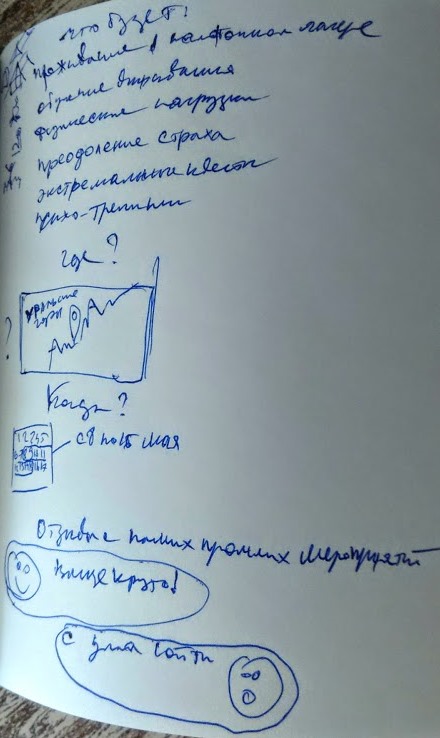 что будет?
проживание в палаточном лагере
обучение выживания
физические нагрузки
преодоление страха
экстремальные квесты
психо-тренинги
где?
уральские
горы
?
Когда?
1 2 3 4 5
с 8 по 15 мая
Отзывы с наших прошлых мероприятий
Ваще круто!
С ума сойти